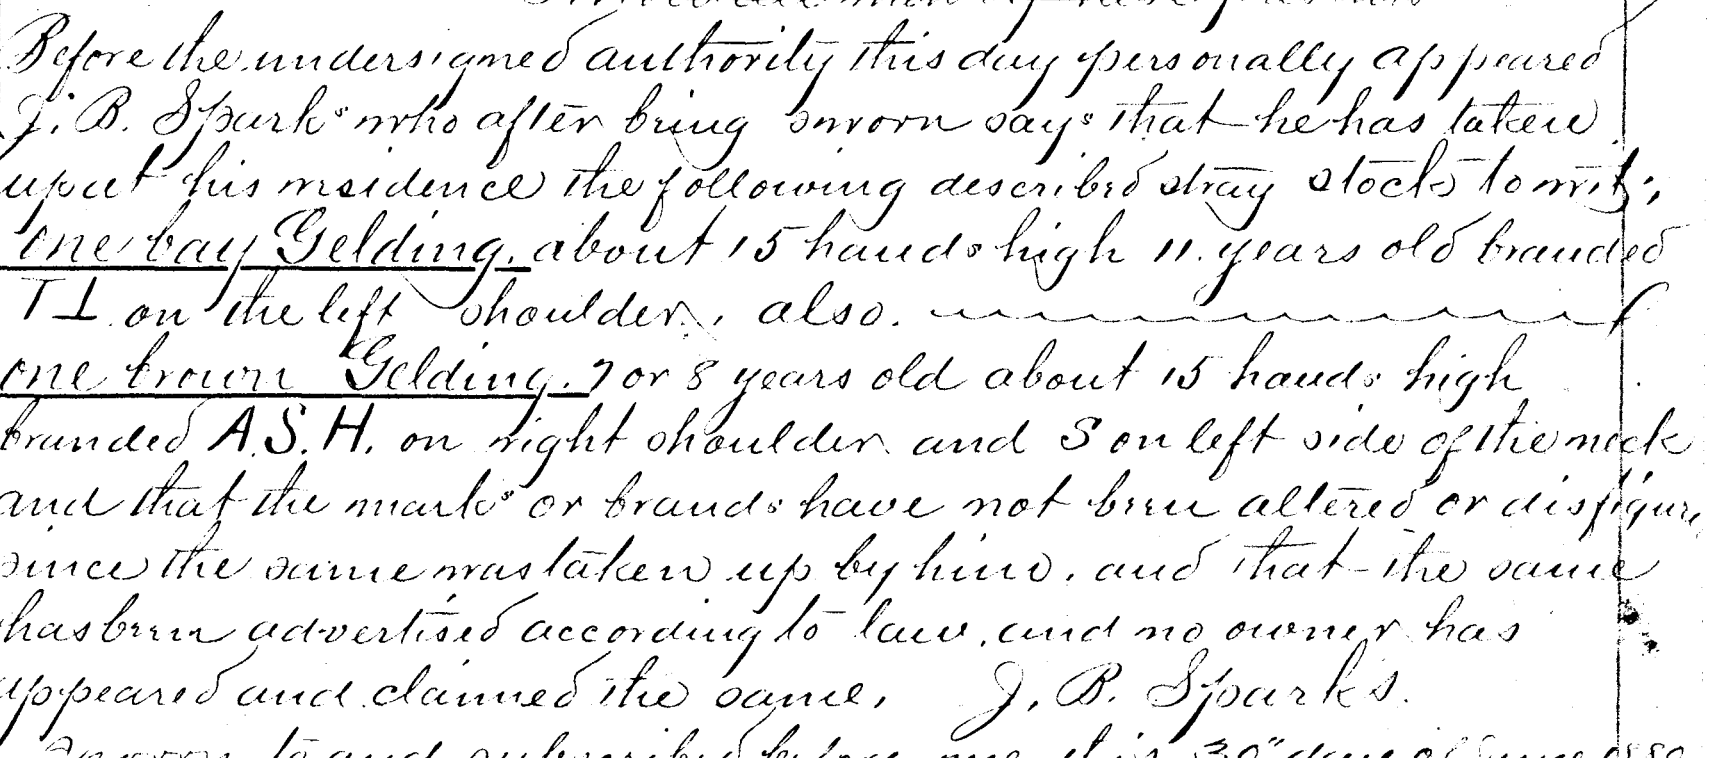 Before the undersigned authority this day personally appeared
J. B. Sparks who after being sworn says that he has taken
up at his residence the following described stray stock to wit:
one bay Gelding. about 15 hands high 11. years old branded
T⊥ on the left shoulder, also.
one brown Gelding. 7 or 8 years old about 15 hands high
branded A.S.H. on right shoulder and S on left side of the neck
and that the marks or brands have not been altered or disfigure
since the same was taken up by him, and that the same
has been advertised according to law, and no owner has
appeared and claimed the same, J. B. Sparks.
to and subscribed before me this 30" day of June